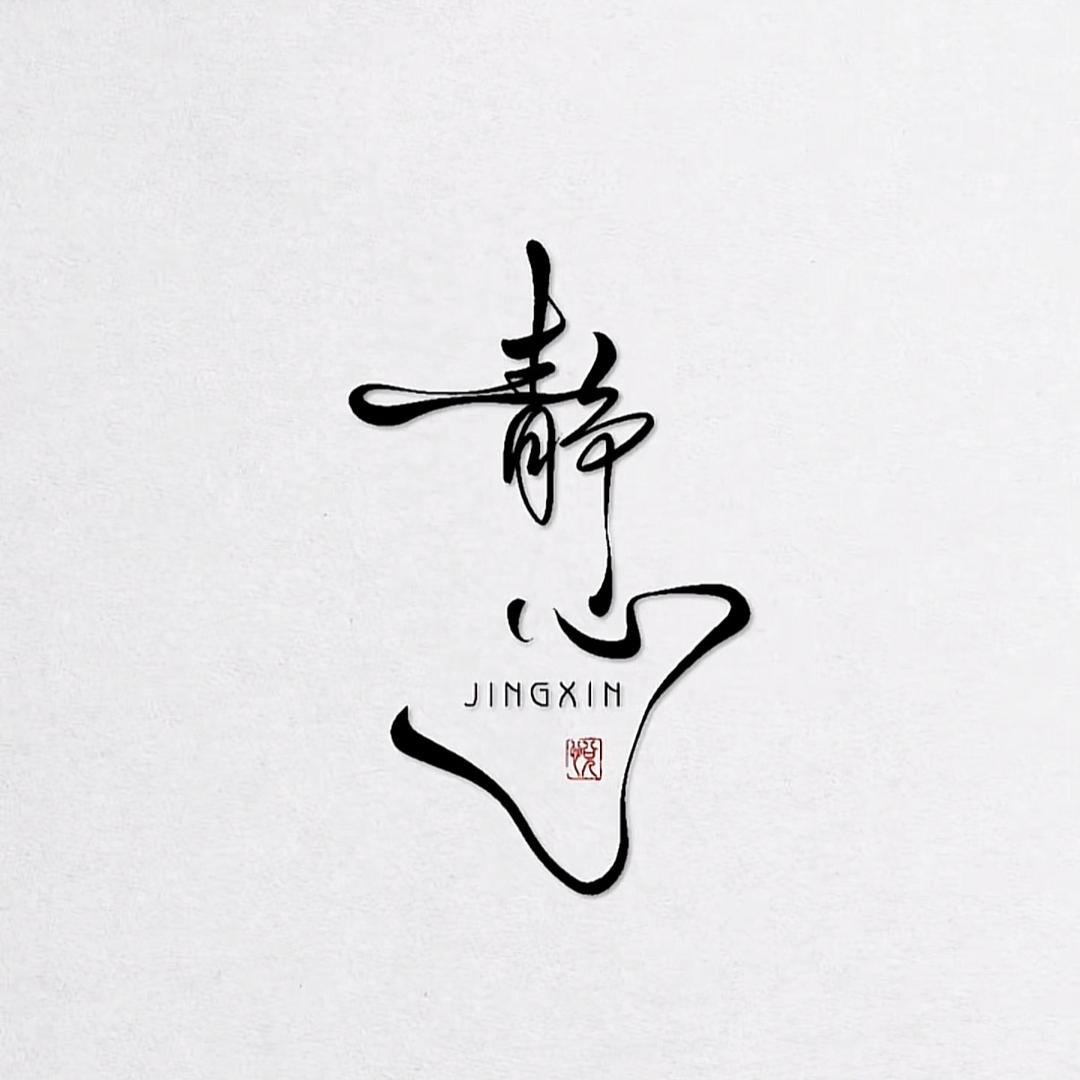 静
心
JINGXIN
悦